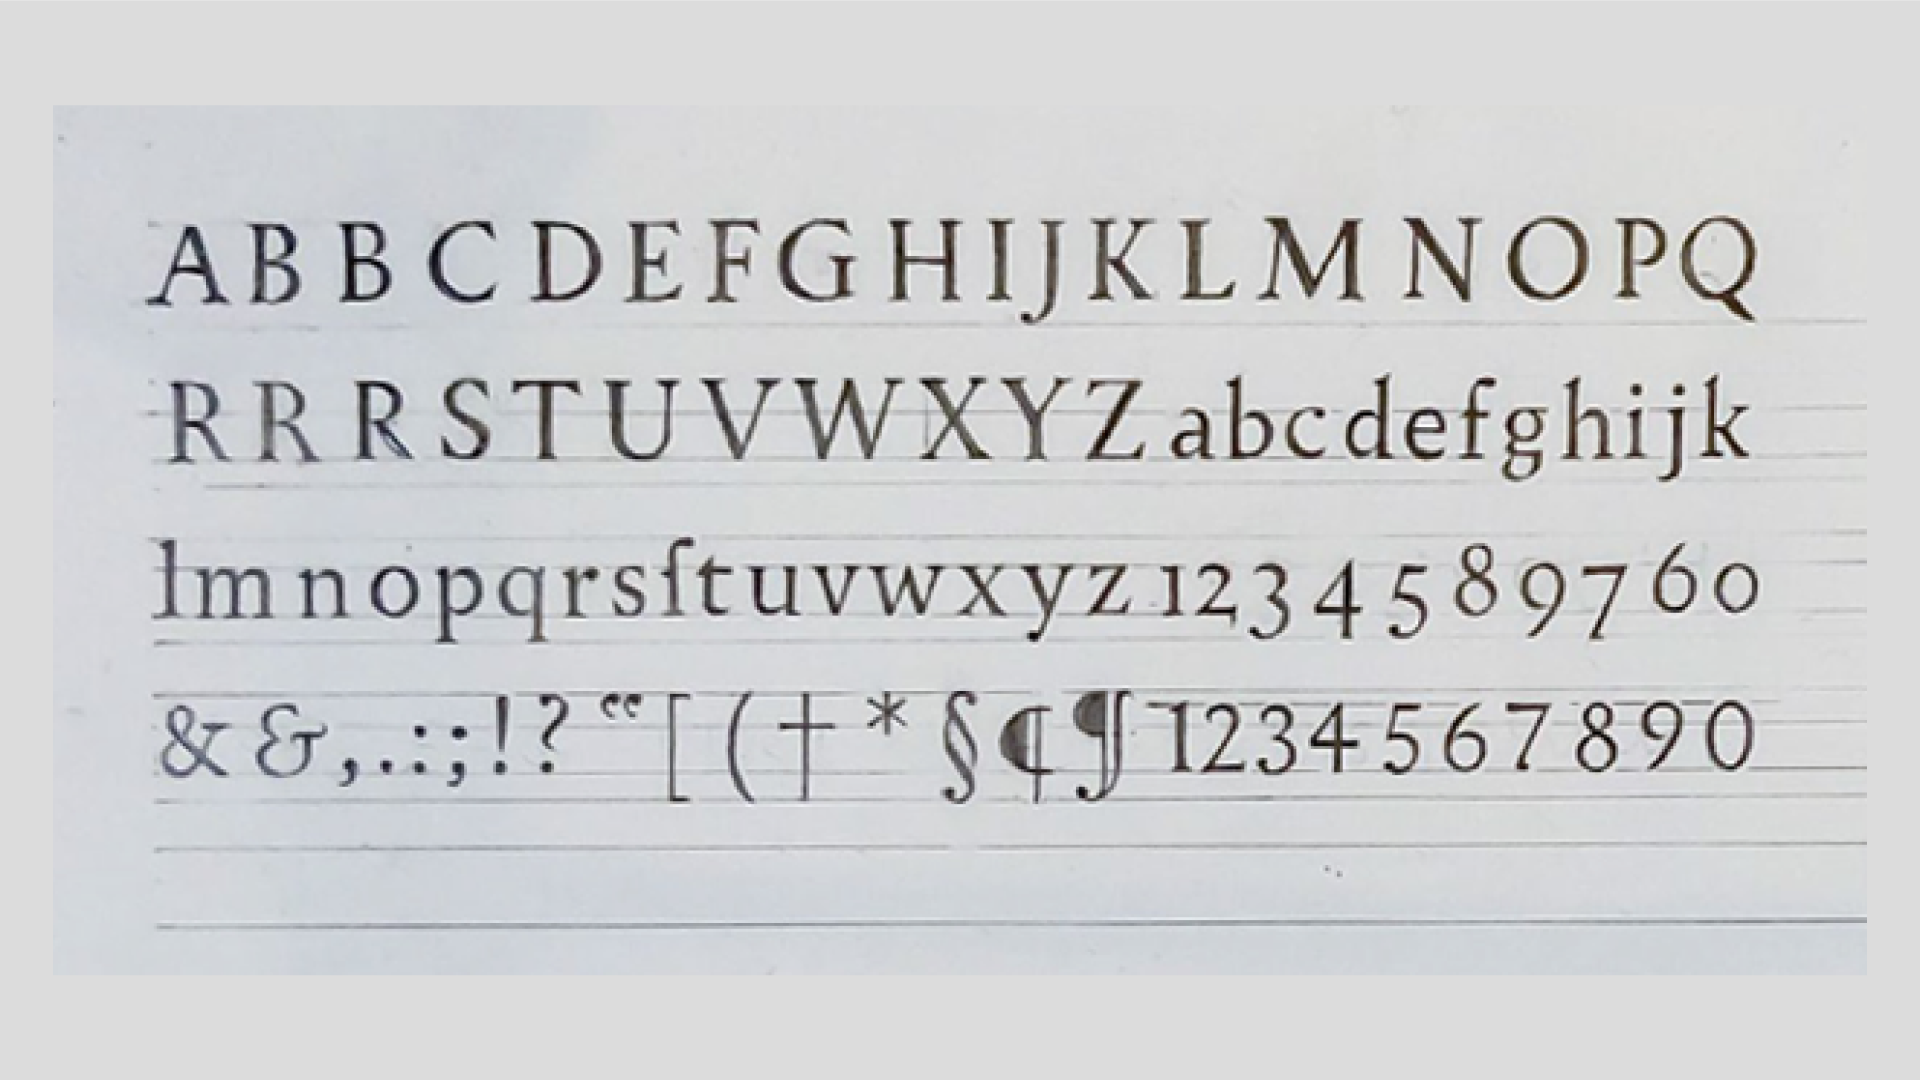 A B B C D E F G H I J K L M N O P Q
R R R S T U V W X Y Z a b c d e f g h i j k
l m n o p q r s ſ t u v w x y z 1 2 3 4 5 8 9 7 6 0
& & , . : ; ! ? “ [ ( † * § ¶ ¶ 1 2 3 4 5 6 7 8 9 0